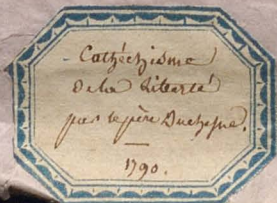 Cathéchisme
de la Liberté
par le père Duchesne.
1790.